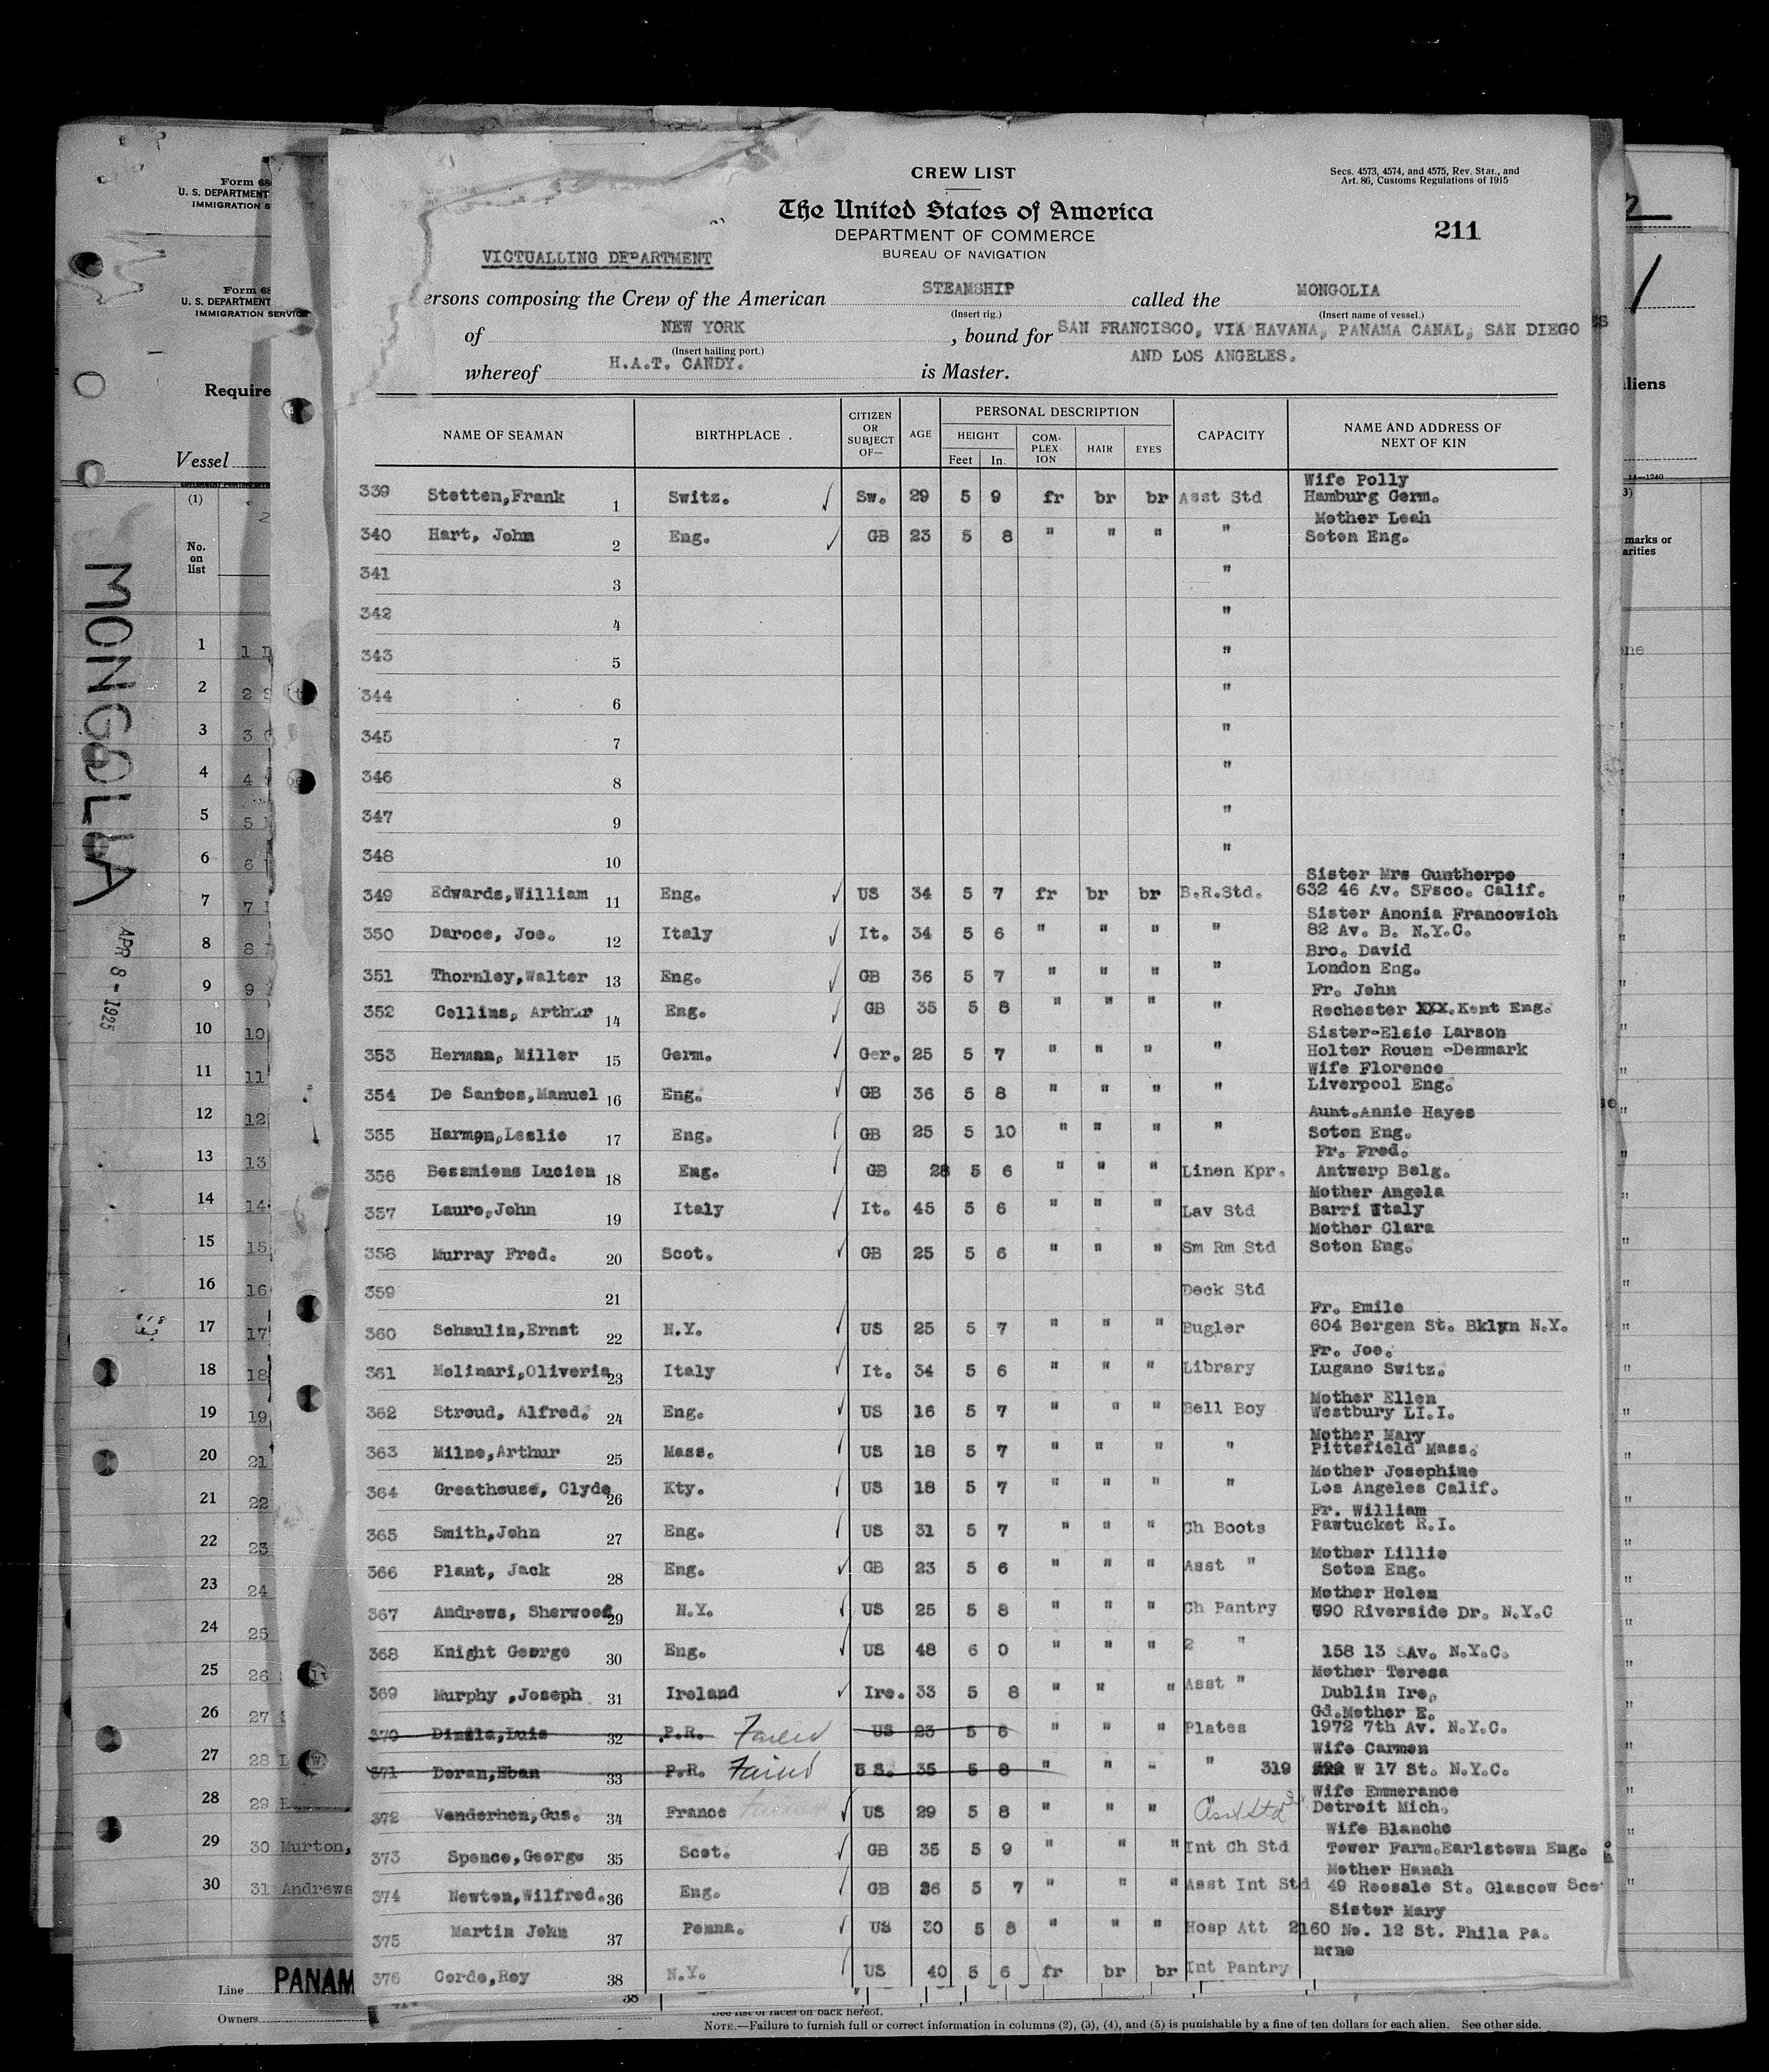 CREW LIST
Secs. 4573, 4574, and 4575, Rev. Stat., and
Art. 86, Customs Regulations of 1915
The United States of America
DEPARTMENT OF COMMERCE
BUREAU OF NAVIGATION
211
VICTUALLING DEPARTMENT
ersons composing the Crew of the American STEAMSHIP called the MONGOLIA
(Insert rig.) (Insert name of vessel.)
of NEW YORK , bound for SAN FRANCISCO, VIA HAVANA, PANAMA CANAL, SAN DIEGO
(Insert hailing port.) AND LOS ANGELES.
whereof H.A.T. CANDY. is Master.
NAME OF SEAMAN BIRTHPLACE CITIZEN OR SUBJECT OF— AGE PERSONAL DESCRIPTION CAPACITY NAME AND ADDRESS OF NEXT OF KIN
HEIGHT COM-PLEX-ION HAIR EYES
Feet In.
Wife Polly
339 Stetten,Frank 1 Switz. ✓ Sw. 29 5 9 fr br br Asst Std Hamburg Germ.
Mother Leah
340 Hart, John 2 Eng. ✓ GB 23 5 8 " " " " Soton Eng.
341 3 "
342 4 "
343 5 "
344 6 "
345 7 "
346 8 "
347 9 "
348 10 "
Sister Mrs Gunthorpe
349 Edwards,William 11 Eng. ✓ US 34 5 7 fr br br B.R.Std. 632 46 Av. SFsco. Calif.
Sister Anonia Francowich
350 Daroce, Joe. 12 Italy ✓ It. 34 5 6 " " " " 82 Av. B. N.Y.C.
Bro. David
351 Thornley,Walter 13 Eng. ✓ GB 36 5 7 " " " " London Eng.
Fr. John
352 Collins, Arthur 14 Eng. ✓ GB 35 5 8 " " " " Rochester XXX.Kent Eng.
Sister-Elsie Larson
353 Herman, Miller 15 Germ. ✓ Ger. 25 5 7 " " " " Holter Rouen -Denmark
Wife Florence
354 De Santos,Manuel 16 Eng. ✓ GB 36 5 8 " " " " Liverpool Eng.
Aunt.Annie Hayes
355 Harmon,Leslie 17 Eng. ✓ GB 25 5 10 " " " " Soton Eng.
Fr. Fred.
356 Bessmiens Lucien 18 Eng. ✓ GB 28 5 6 " " " Linen Kpr. Antwerp Belg.
Mother Angela
357 Lauro,John 19 Italy ✓ It. 45 5 6 " " " Lav Std Barri Utaly
Mother Clara
358 Murray Fred. 20 Scot. ✓ GB 25 5 6 " " " Sm Rm Std Soton Eng.
359 21 Deck Std
Fr. Emile
360 Schaulin,Ernst 22 N.Y. ✓ US 25 5 7 " " " Bugler 604 Bergen St. Bklyn N.Y.
Fr. Joe.
361 Molinari,Oliveria 23 Italy ✓ It. 34 5 6 " " " Library Lugano Switz.
Mother Ellen
362 Stroud, Alfred. 24 Eng. ✓ US 16 5 7 " " " Bell Boy Westbury LI.I.
Mother Mary
363 Milne,Arthur 25 Mass. ✓ US 18 5 7 " " " " Pittsfield Mass.
Mother Josephine
364 Greathouse, Clyde 26 Kty. ✓ US 18 5 7 " " " " Los Angeles Calif.
Fr. William
365 Smith,John 27 Eng. ✓ US 31 5 7 " " " Ch Boots Pawtucket R.I.
Mother Lillie
366 Plant, Jack 28 Eng. ✓ GB 23 5 6 " " " Asst " Soton Eng.
Mother Helen
367 Andrews, Sherwood 29 N.Y. ✓ US 25 5 8 " " " Ch Pantry 790 Riverside Dr. N.Y.C
368 Knight George 30 Eng. ✓ US 48 6 0 " " " 2 " 158 13 SAv. N.Y.C.
Mother Teresa
369 Murphy ,Joseph 31 Ireland ✓ Ire. 33 5 8 " " " Asst " Dublin Ire,
Gd.Mother E.
370 Luis 32 P.R. Failed US 23 5 6 " " " Plates 1972 7th Av. N.Y.C.
Wife Carmen
371 Doran, 33 P.R. Failed 35 5 8 " " " " 319 W 17 St. N.Y.C.
Wife Emmerance
372 Venderhen,Gus. 34 France ✓ US 29 5 8 " " " Asst Std Detroit Mich.
Wife Blanche
373 Spence,George 35 Scot. ✓ GB 35 5 9 " " " Int Ch Std Tower Farm.Earlstown Eng.
Mother Hanah
374 Newton,Wilfred. 36 Eng. ✓ GB 26 5 7 " " " Asst Int Std 49 Roesale St. Glascow Sco
Sister Mary
375 Martin John 37 Penna. ✓ US 30 5 8 " " " Hosp Att 2160 No. 12 St. Phila Pa.
none
376 Corde,Roy 38 N.Y. US 40 5 6 fr br br Int Pantry
38
See list of races on back hereof.
NOTE.—Failure to furnish full or correct information in columns (2), (3), (4), and (5) is punishable by a fine of ten dollars for each alien. See other side.
Form 68
U. S. DEPARTMENT
IMMIGRATION S
Form 68
U. S. DEPARTMENT
IMMIGRATION SERVICE
Require
Vessel
(1)
No.
on
list
MONGOLIA
APR 8 - 1925
1
2
3
4
5
6
7
8
9
10
11
12
13
14
15
16
17
18
19
20
21
22
23
24
25
26
27
28
29 30 Murton,
30 31 Andrews
Line PANAM
Owners
liens
14—1240
3)
marks or
arities